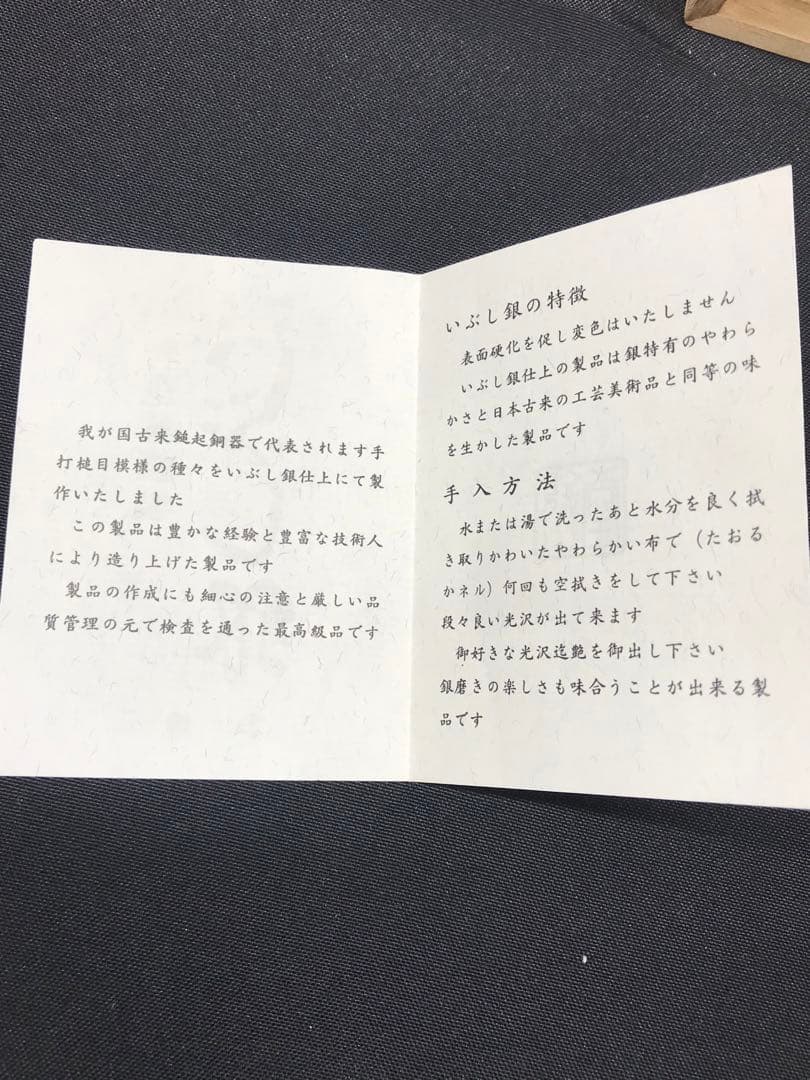 我が国古来鎚起銅器で代表されます手
打槌目模様の種々をいぶし銀仕上にて製
作いたしました
この製品は豊かな経験と豊富な技術人
により造り上げた製品です
製品の作成にも細心の注意と厳しい品
質管理の元で検査を通った最高級品です
いぶし銀の特徴
表面硬化を促し変色はいたしません
いぶし銀仕上の製品は銀特有のやわら
かさと日本古来の工芸美術品と同等の味
を生かした製品です
手入方法
水または湯で洗ったあと水分を良く拭
き取りかわいたやわらかい布で（たおる
かネル）何回も空拭きをして下さい
段々良い光沢が出て来ます
御好きな光沢迄艶を御出し下さい
銀磨きの楽しさも味合うことが出来る製
品です